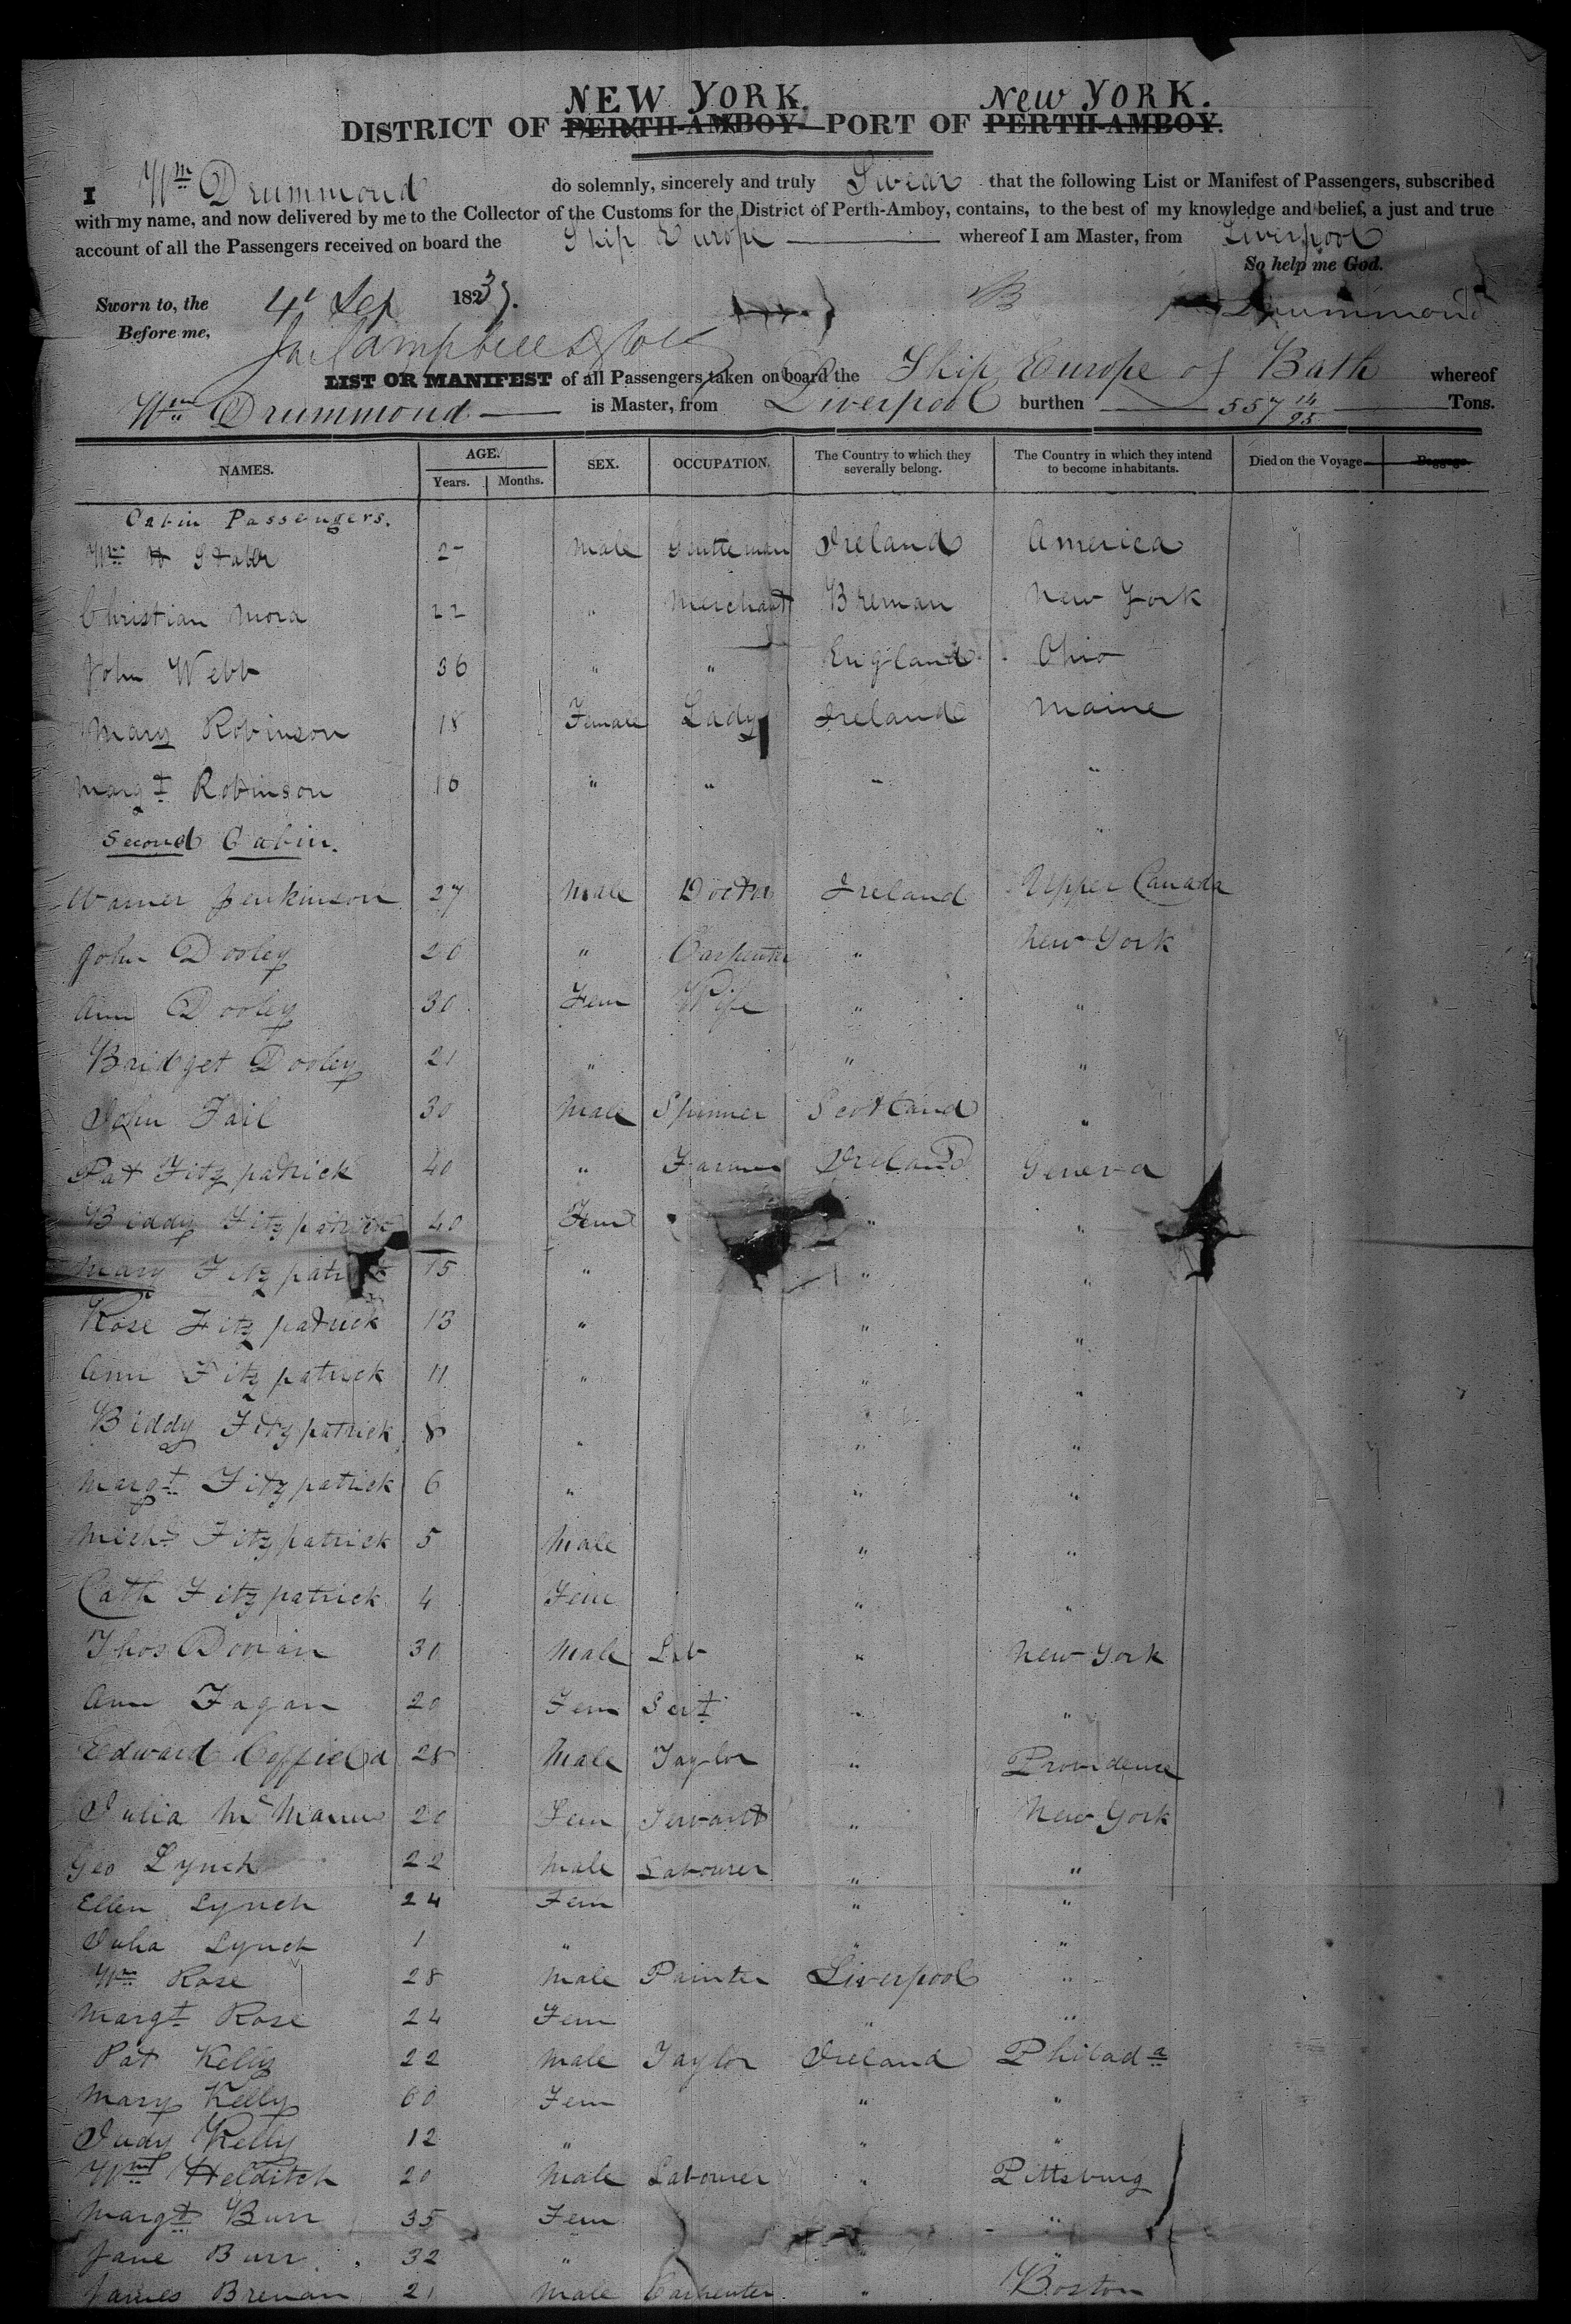 NEW YORK. New YORK.
DISTRICT OF PERTH-AMBOY. PORT OF PERTH-AMBOY.
I Wm Drummond do solemnly, sincerely and truly Swear that the following List or Manifest of Passengers, subscribed
with my name, and now delivered by me to the Collector of the Customs for the District of Perth-Amboy, contains, to the best of my knowledge and belief, a just and true
account of all the Passengers received on board the Ship Europe whereof I am Master, from Liverpool
So help me God.
Sworn to, the 4 Sep 1837. Drummond
Before me,
LIST OR MANIFEST of all Passengers taken on board the Ship Europe of Bath whereof
Wm Drummond is Master, from Liverpool burthen 557 14/95 Tons.
NAMES. AGE. Years. Months. SEX. OCCUPATION. The Country to which they severally belong. The Country in which they intend to become inhabitants. Died on the Voyage Baggage.
Cabin Passengers.
Wm H 2- Male Gentleman Ireland America
Christian Mora 22 " Merchant Breman New York
John Webb 36 " " England Ohio
Mary Robinson 18 Female Lady Ireland Maine
Margt Robinson 16 " " " "
Second Cabin.
Warner Jenkinson 27 Male Doctor Ireland Upper Canada
John Dooley 26 " Carpenter " New York
Ann Dooley 30 Fem Wife " "
Bridget Dooley 21 " " "
John Fail 30 Male Spinner Scotland "
Pat Fitzpatrick 40 " Farmer Ireland Geneva
Biddy Fitzpatrick 40 Fem " "
Mary Fitzpatrick 15 " " "
Rose Fitzpatrick 13 " " "
Ann Fitzpatrick 11 " " "
Biddy Fitzpatrick 8 " " "
Margt Fitzpatrick 6 " " "
Michl Fitzpatrick 5 Male " "
Cath Fitzpatrick 4 Fem " "
Thos Doran 30 Male Lab " New York
Ann Fagan 20 Fem Sert " "
Edward Coffield 28 Male Taylor " Providence
Julia McManus 20 Fem Servant " New York
Geo Lynch 22 Male Labourer " "
Ellen Lynch 24 Fem " "
Julia Lynch 1 " " "
Wm Rose 28 Male Painter Liverpool "
Margt Rose 24 Fem " "
Pat Kelly 22 Male Taylor Ireland Philada
Mary Kelly 60 Fem " "
Judy Kelly 12 " " "
Wm Helditch 20 Male Labourer " Pittsburg
Margt Burr 35 Fem "
Jane Burr 32 " " "
James Brenan 21 Male Carpenter " Boston